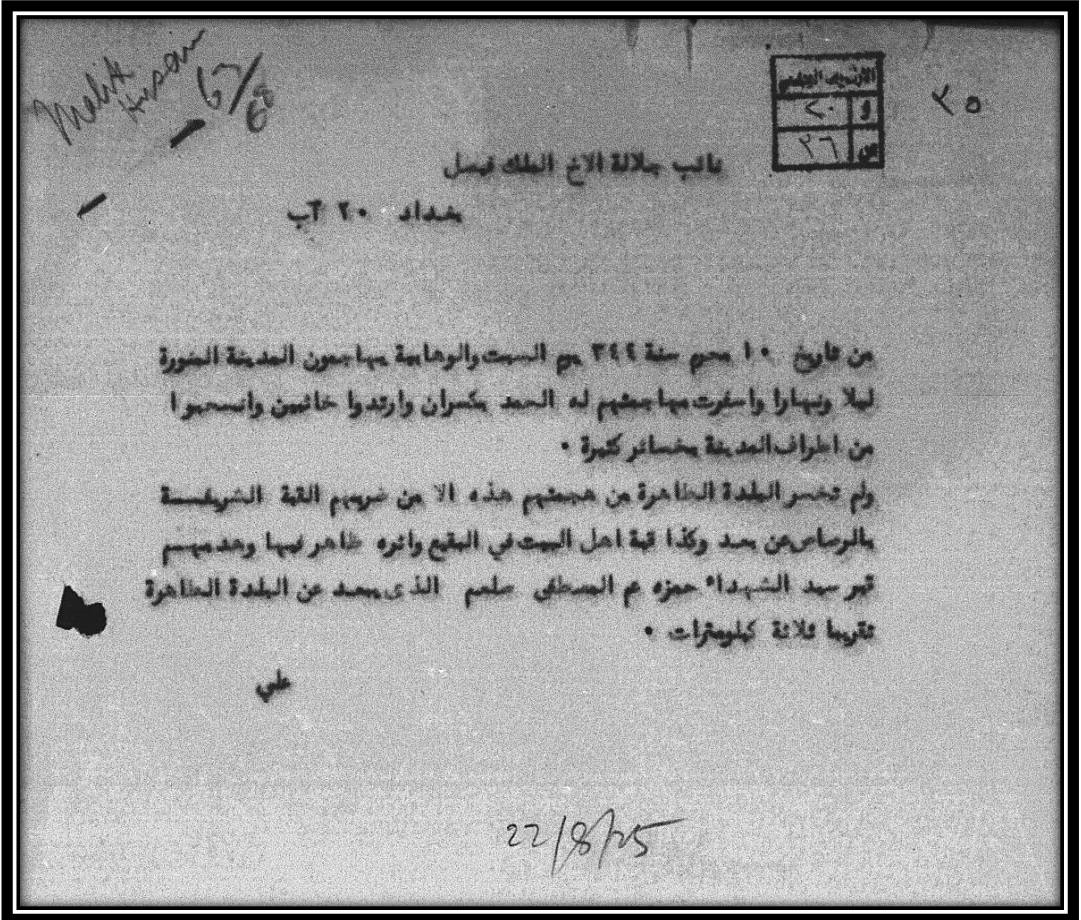 Malik
Husan
67/68
٢٥
و ٢٠
ص ٢٦
نائب جلالة الاخ الملك فيصل
بغداد ٢٠ آب
من تاريخ ١٠ محرم سنة ٣٤٤ يوم السبت والوهابية يهاجمون المدينة المنورة
ليلا ونهارا واسفرت مهاجمتهم له الحمد بكسران وارتدوا خائبين وانسحبوا
من اطراف المدينة بخسائر كثيرة ٠
ولم تخسر البلدة الطاهرة من هجمتهم هذه الا من ضربهم القبة الشريفسة
بالرصاص عن بعد وكذا قبة اهل البيت في البقيع واثره ظاهر فيها وهدميهم
قبر سيد الشهداء حمزه عم المصطفى صلعم الذى يبعد عن البلدة الطاهرة
تقريبا ثلاثة كيلومترات ٠
علي
22/8/25